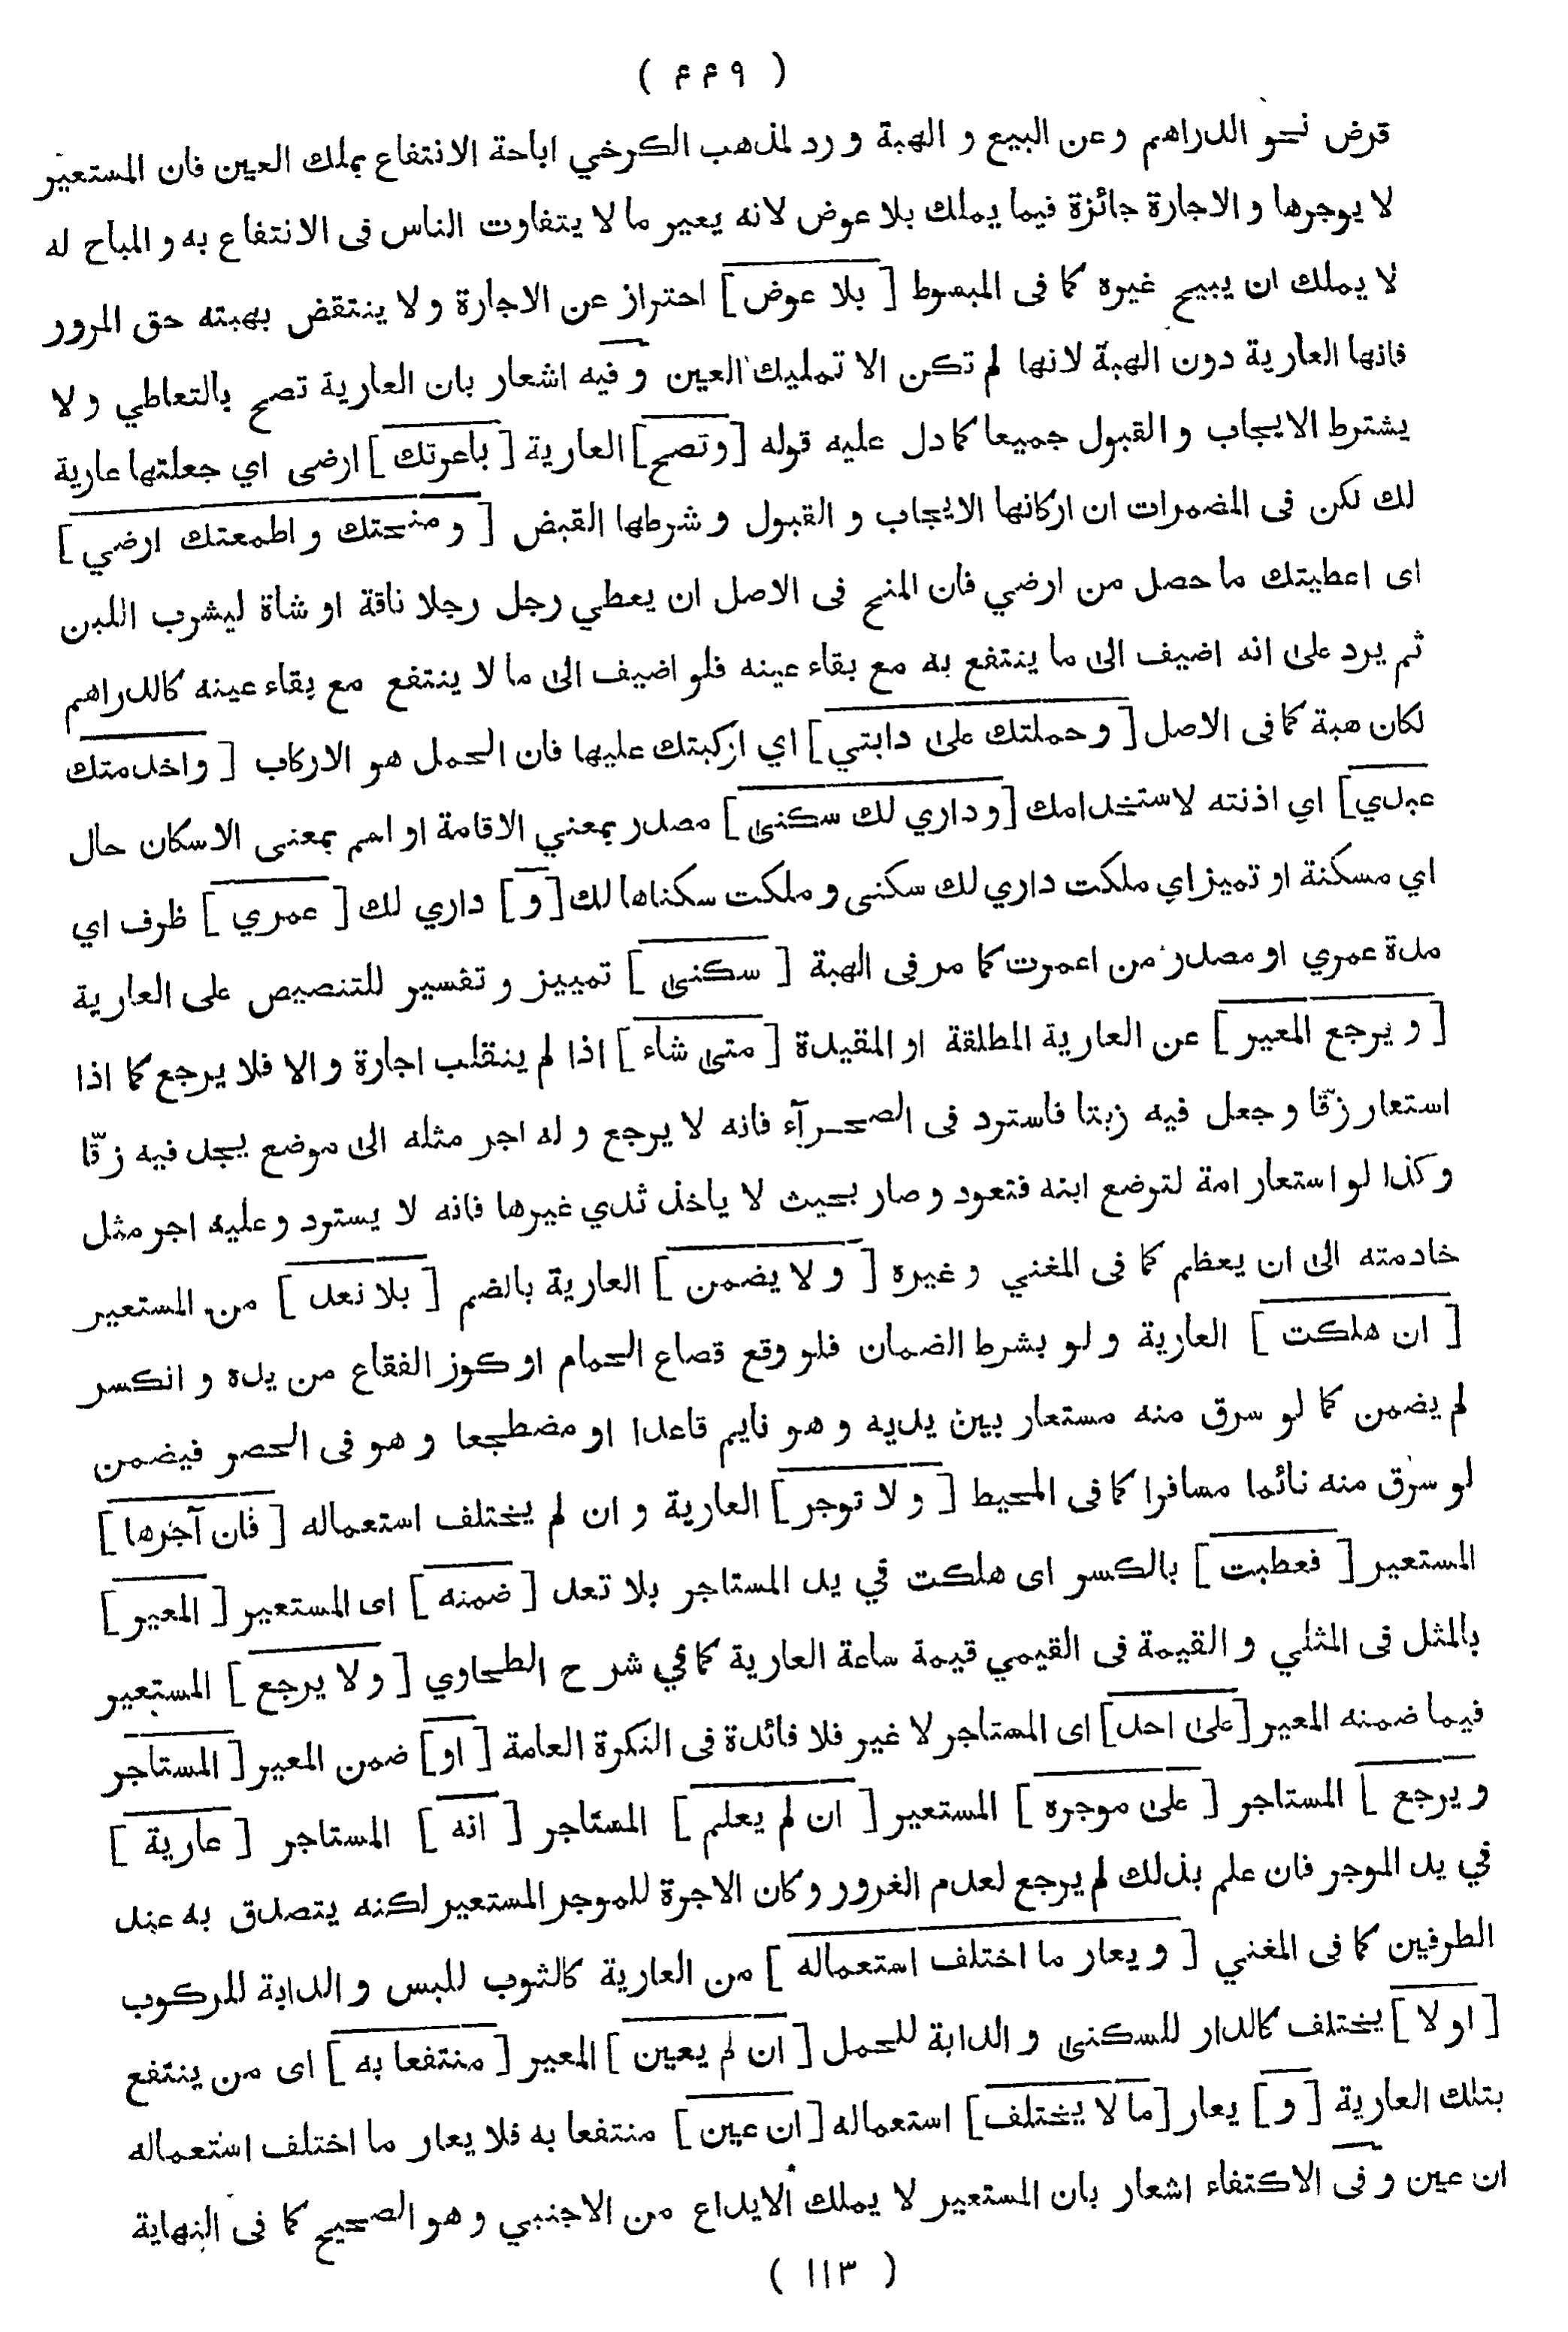 ( ۴۴۹ )
قرض نحو الدراهم وعن البيع و الهبة و رد لمذهب الكرخي اباحة الانتفاع بملك العين فان المستعير
لا يوجرها و الاجارة جائزة فيما يملك بلا عوض لانه يعير ما لا يتفاوت الناس فى الانتفاع به و المباح له
لا يملك ان يبيح غيره كما فى المبسوط [ بلا عوض ] احتراز عن الاجارة و لا ينتقض بهبته حق المرور
فانها العارية دون الهبة لانها لم تكن الا تمليك العين و فيه اشعار بان العارية تصح بالتعاطي و لا
يشترط الايجاب و القبول جميعا كما دل عليه قوله [ وتصح ] العارية [ باعرتك ] ارضى اي جعلتها عارية
لك لكن فى المضمرات ان اركانها الايجاب و القبول و شرطها القبض [ و منحتك و اطمعتك ارضي ]
اى اعطيتك ما حصل من ارضي فان المنح فى الاصل ان يعطي رجل رجلا ناقة او شاة ليشرب اللبن
ثم يرد على انه اضيف الى ما ينتفع به مع بقاء عينه فلو اضيف الى ما لا ينتفع مع بقاء عينه كالدراهم
لكان هبة كما فى الاصل [ و حملتك على دابتي ] اي اركبتك عليها فان الحمل هو الاركاب [ واخدمتك
عبدي ] اي اذنته لاستخدامك [ و داري لك سكنى ] مصدر بمعني الاقامة او اسم بمعنى الاسكان حال
اي مسكنة او تميز اي ملكت داري لك سكنى و ملكت سكناها لك [ و ] داري لك [ عمري ] ظرف اي
مدة عمري او مصدر من اعمرت كما مر فى الهبة [ سكنى ] تمييز و تفسير للتنصيص على العارية
[ و يرجع المعير ] عن العارية المطلقة او المقيدة [ متى شاء ] اذا لم ينقلب اجارة و الا فلا يرجع كما اذا
استعار زقّا و جعل فيه زيتا فاسترد فى الصحرآء فانه لا يرجع و له اجر مثله الى موضع يجد فيه زقّا
و كذا لو استعار امة لترضع ابنه فتعود و صار بحيث لا ياخذ ثدي غيرها فانه لا يسترد و عليه اجر مثل
خادمته الى ان يعظم كما فى المغني و غيره [ و لا يضمن ] العارية بالضم [ بلا تعد ] من المستعير
[ ان هلكت ] العارية و لو بشرط الضمان فلو وقع قصاع الحمام او كوز الفقاع من يده و انكسر
لم يضمن كما لو سرق منه مستعار بين يديه و هو نايم قاعدا او مضطجعا و هو فى الحصر فيضمن
لو سرق منه نائما مسافرا كما فى المحيط [ و لا توجر ] العارية و ان لم يختلف استعماله [ فان آجرها ]
المستعير [ فعطبت ] بالكسر اى هلكت في يد المستاجر بلا تعد [ ضمنه ] اى المستعير [ المعير ]
بالمثل فى المثلي و القيمة فى القيمي قيمة ساعة العارية كما في شرح الطحاوي [ و لا يرجع ] المستعير
فيما ضمنه المعير [ على احد ] اى المستاجر لا غير فلا فائدة فى النكرة العامة [ او ] ضمن المعير [ المستاجر
و يرجع ] المستاجر [ على موجره ] المستعير [ ان لم يعلم ] المستاجر [ انه ] المستاجر [ عارية ]
في يد الموجر فان علم بذلك لم يرجع لعدم الغرور و كان الاجرة للموجر المستعير لكنه يتصدق به عند
الطرفين كما فى المغني [ و يعار ما اختلف استعماله ] من العارية كالثوب للبس و الدابة للركوب
[ او لا ] يختلف كالدار للسكنى و الدابة للحمل [ ان لم يعين ] المعير [ منتفعا به ] اى من ينتفع
بتلك العارية [ و ] يعار [ ما لا يختلف ] استعماله [ ان عين ] منتفعا به فلا يعار ما اختلف استعماله
ان عين و فى الاكتفاء اشعار بان المستعير لا يملك الايداع من الاجنبي و هو الصحيح كما فى النهاية
( ۱۱۳ )